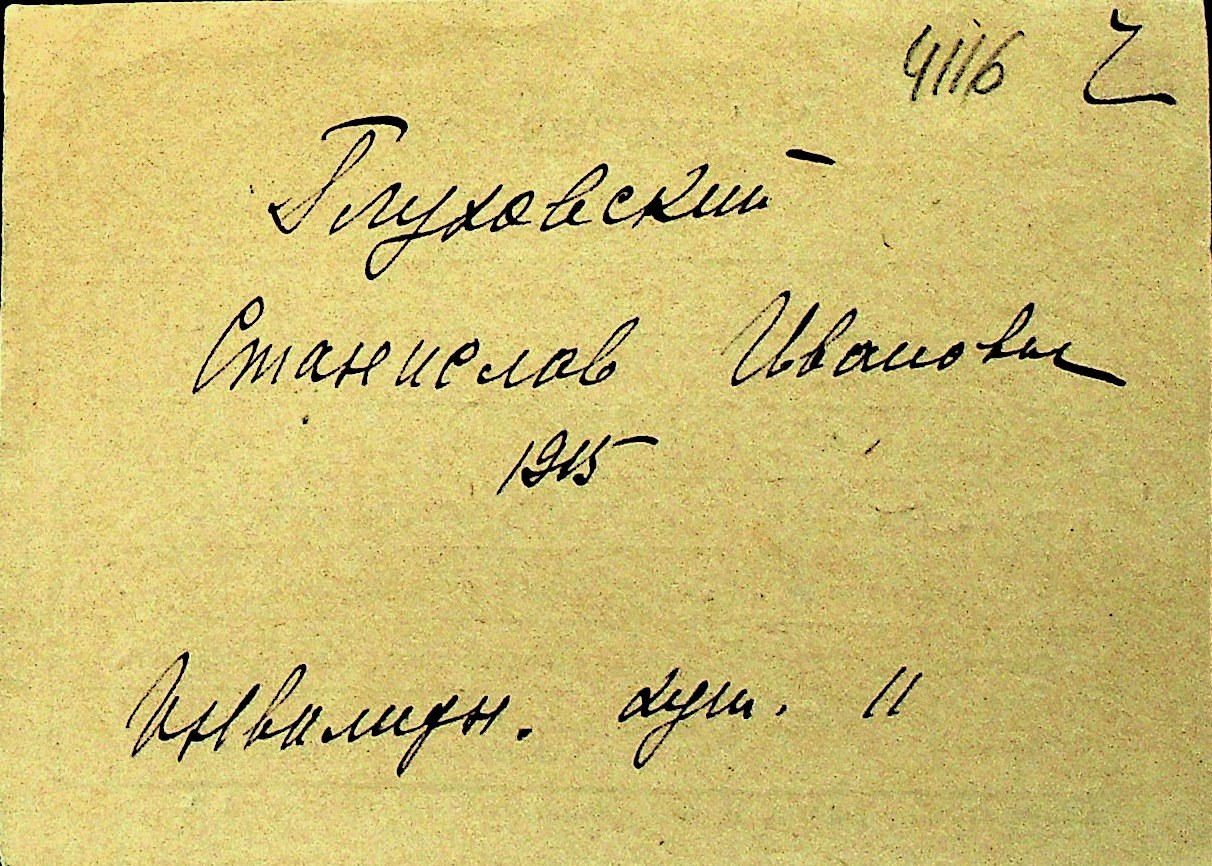 4116 ч
Глуховский
Станислов Иванович
1915
Инвалидн. 11